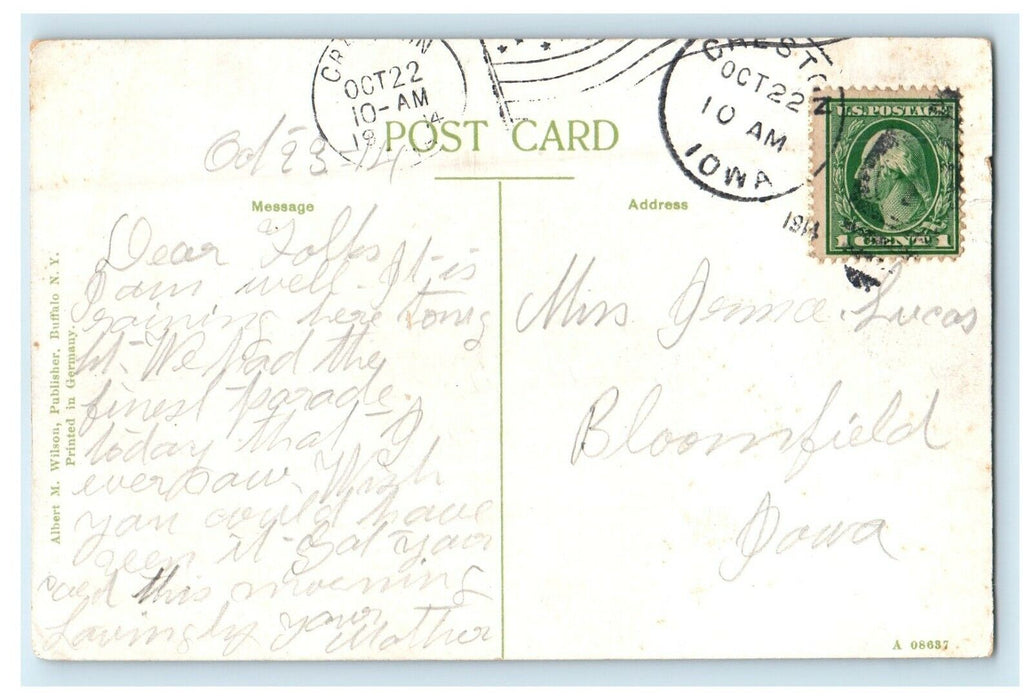 CRESTON
OCT 22
10-AM
1914
CRESTON
OCT 22
10 AM
IOWA
1914
U.S. POSTAGE
1 CENT 1
POST CARD
Oct 23-14
Message
Address
Dear Folks
I am well. It is
raining here tonig
ht. We had the
finest parade
today that I
ever saw. Wish
you could have
seen it - Got your
card this morning
Lovingly your
Mother
Miss Lucas
Bloomfield
Iowa
Albert M. Wilson, Publisher, Buffalo N. Y.
Printed in Germany.
A 08637